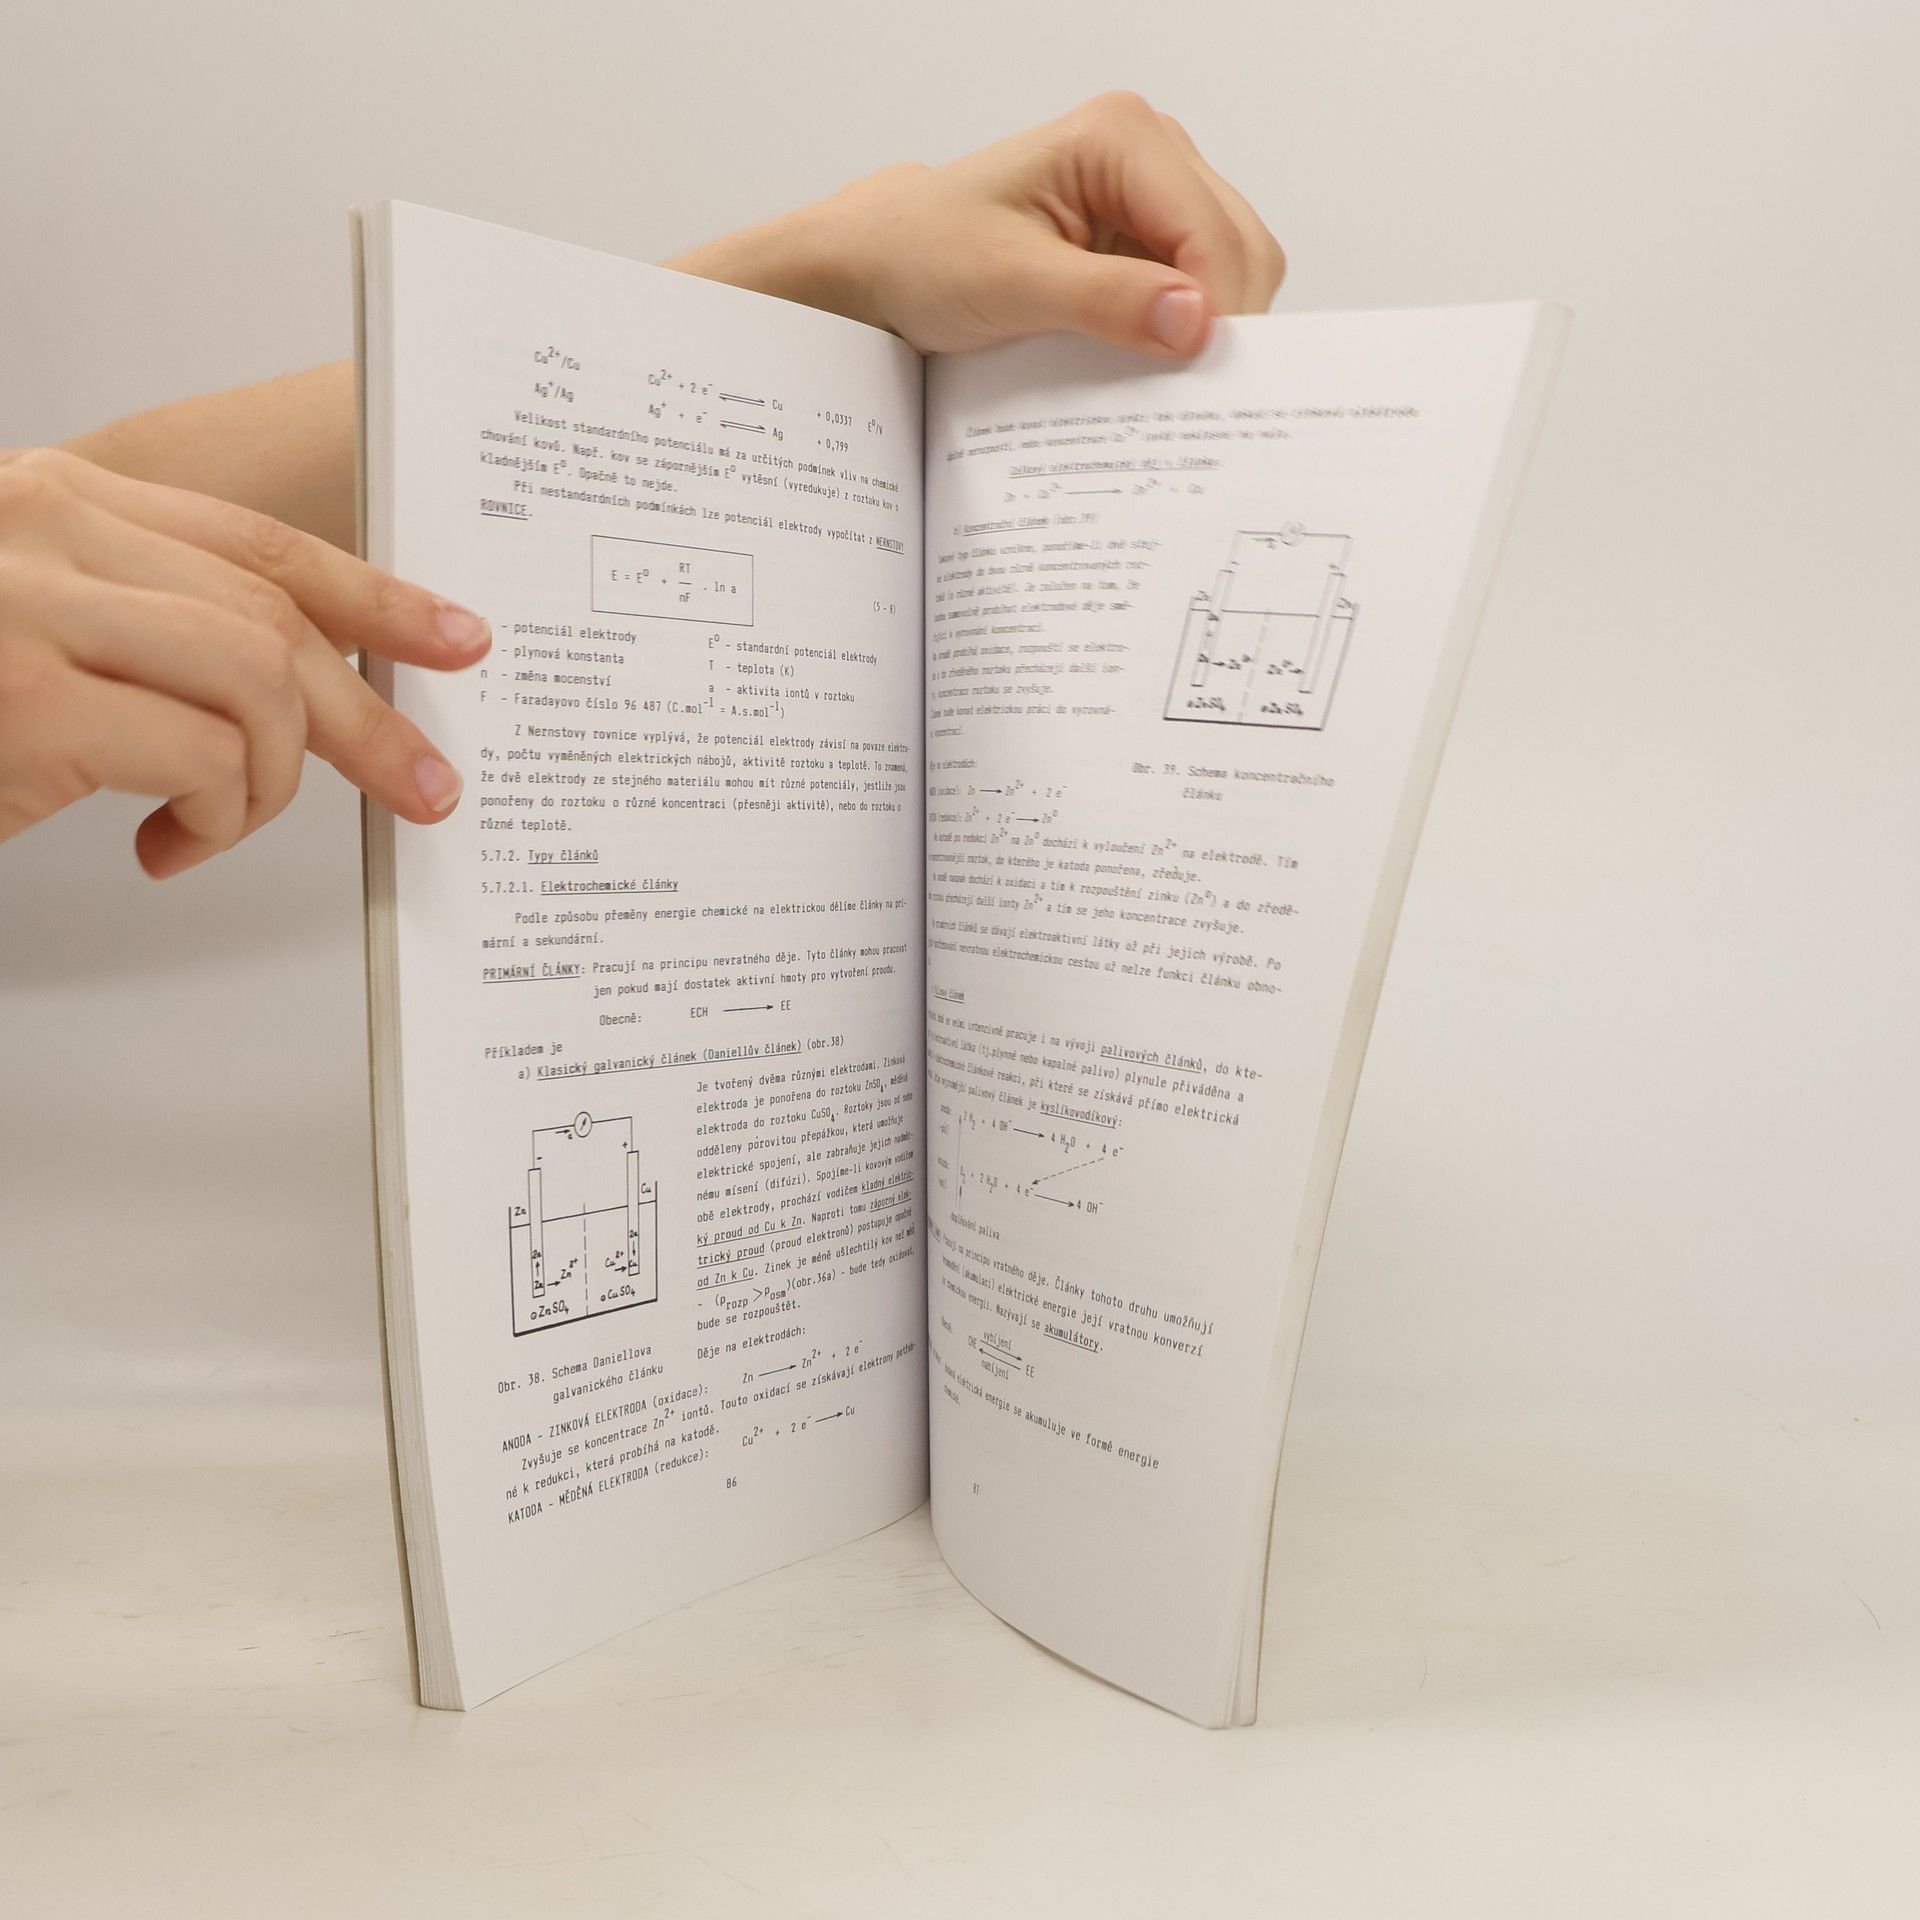 Cu2+/Cu Cu2+ + 2 e- ⇌ Cu + 0,0337 E0/V
Ag+/Ag Ag+ + e- ⇌ Ag + 0,799
Velikost standardního potenciálu má za určitých podmínek vliv na chemické
chování kovů. Např. kov se zápornějším E0 vytěsní (vyredukuje) z roztoku kov s
kladnějším E0. Opačně to nejde.
Při nestandardních podmínkách lze potenciál elektrody vypočítat z NERNSTOVY
ROVNICE.
E = E0 + RT/nF . ln a
(5 - 8)
- potenciál elektrody E0 - standardní potenciál elektrody
- plynová konstanta T - teplota (K)
n - změna mocenství a - aktivita iontů v roztoku
F - Faradayovo číslo 96 487 (C.mol-1 = A.s.mol-1)
Z Nernstovy rovnice vyplývá, že potenciál elektrody závisí na povaze elektro-
dy, počtu vyměněných elektrických nábojů, aktivitě roztoku a teplotě. To znamená,
že dvě elektrody ze stejného materiálu mohou mít různé potenciály, jestliže jsou
ponořeny do roztoku o různé koncentraci (přesněji aktivitě), nebo do roztoku o
různé teplotě.
5.7.2. Typy článků
5.7.2.1. Elektrochemické články
Podle způsobu přeměny energie chemické na elektrickou dělíme články na pri-
mární a sekundární.
PRIMÁRNÍ ČLÁNKY: Pracují na principu nevratného děje. Tyto články mohou pracovat
jen pokud mají dostatek aktivní hmoty pro vytvoření proudu.
Obecně: ECH → EE
Příkladem je
a) Klasický galvanický článek (Daniellův článek) (obr.38)
Je tvořený dvěma různými elektrodami. Zinková
elektroda je ponořena do roztoku ZnSO4, měděná
elektroda do roztoku CuSO4. Roztoky jsou od sebe
odděleny pórovitou přepážkou, která umožňuje
elektrické spojení, ale zabraňuje jejich nadměr-
nému mísení (difúzi). Spojíme-li kovovým vodičem
obě elektrody, prochází vodičem kladný elektric-
ký proud od Cu k Zn. Naproti tomu záporný elek-
trický proud (proud elektronů) postupuje opačně
od Zn k Cu. Zinek je méně ušlechtilý kov než měď
- (Prozp > Posm)(obr.36a) - bude tedy oxidovat,
bude se rozpouštět.
Děje na elektrodách:
e
- +
Zn Cu
Zn Zn2+ Cu2+ Cu
⊖ZnSO4 ⊖CuSO4
Obr. 38. Schema Daniellova
galvanického článku
ANODA - ZINKOVÁ ELEKTRODA (oxidace): Zn → Zn2+ + 2 e-
Zvyšuje se koncentrace Zn2+ iontů. Touto oxidací se získávají elektrony potřeb-
né k redukci, která probíhá na katodě.
KATODA - MĚDĚNÁ ELEKTRODA (redukce): Cu2+ + 2 e- → Cu
86
b) Koncentrační článek (obr.39)
typ článku vznikne, ponoříme-li dvě stej-
elektrody do dvou různě koncentrovaných roz-
(o různé aktivitě). Je založen na tom, že
samovolně probíhat elektrodové děje smě-
k vyrovnání koncentrací.
anodě probíhá oxidace, rozpouští se elektro-
a do zředěného roztoku přecházejí další ion-
koncentrace roztoku se zvyšuje.
bude konat elektrickou práci do vyrovná-
koncentrací.
Obr. 39. Schema koncentračního
článku
na elektrodách:
(oxidace): Zn → Zn2+ + 2 e-
(redukce): Zn2+ + 2 e- → Zn0
katodě po redukci Zn2+ na Zn0 dochází k vyloučení Zn2+ na elektrodě. Tím
roztok, do kterého je katoda ponořena, zřeďuje.
naopak dochází k oxidaci a tím k rozpouštění zinku (Zn0) a do zředě-
přecházejí další ionty Zn2+ a tím se jeho koncentrace zvyšuje.
článků se dávají elektroaktivní látky už při jejich výrobě. Po
nevratnou elektrochemickou cestou už nelze funkci článku obno-
článek
se velmi intenzivně pracuje i na vývoji palivových článků, do kte-
látka (tj.plynné nebo kapalné palivo) plynule přiváděna a
článkové reakci, při které se získává přímo elektrická
palivový článek je kyslíkovodíkový:
2 H2 + 4 OH- → 4 H2O + 4 e-
O2 + 2 H2O + 4 e- → 4 OH-
doplňování paliva
na principu vratného děje. Články tohoto druhu umožňují
(akumulaci) elektrické energie její vratnou konverzí
energii. Nazývají se akumulátory.
vybíjení
CHE ⇌ EE
nabíjení
elektrická energie se akumuluje ve formě energie
chemické.
87